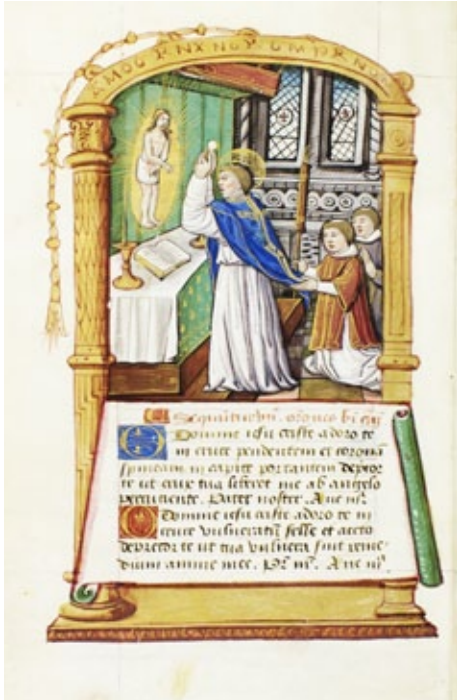 Domine iesu criste adoro te
in cruce pendentem et coronā
spineam in capite portantem depcor
te ut crux tua liberet me ab angelo
percuciente. Pater noster. Aue mr̄.
Domine iesu criste adoro te in
cruce vulneratū felle et aceto
deprecor te ut tua vulnera sint reme
dium anime mee. Pr̄. nr̄. Aue mr̄.